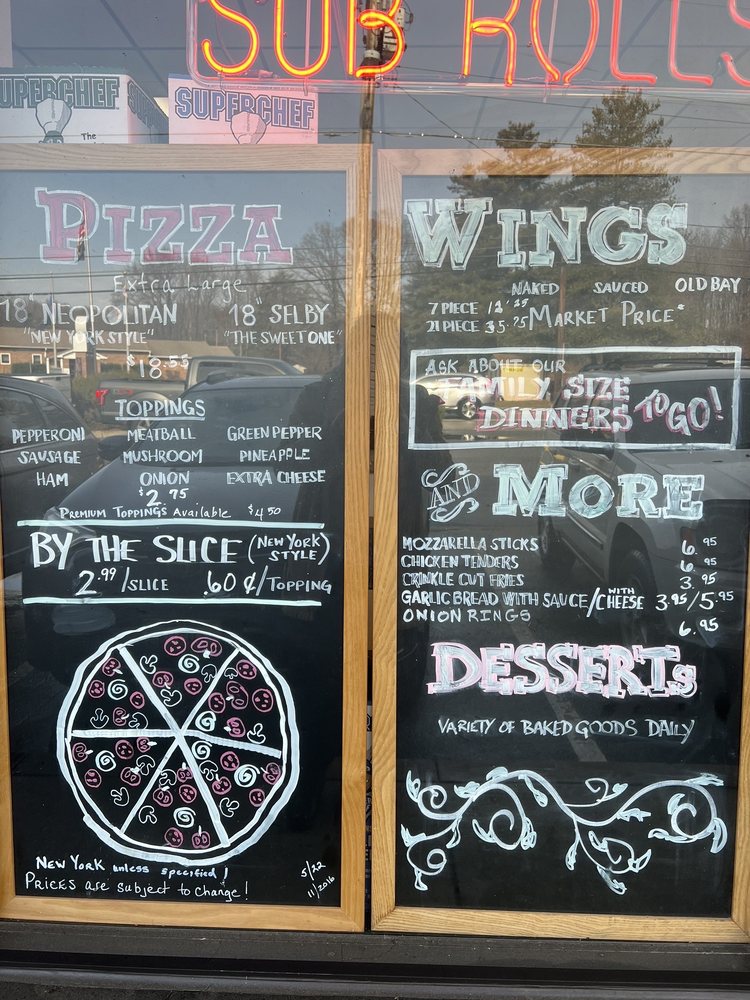 SUB ROLLS
SUPERCHEF
SUPERCHEF
The
PIZZA
Extra Large
18" NEOPOLITAN
"NEW YORK STYLE"
18" SELBY
"THE SWEET ONE"
$18.55
TOPPINGS
PEPPERONI MEATBALL GREEN PEPPER
SAUSAGE MUSHROOM PINEAPPLE
HAM ONION EXTRA CHEESE
$2.75
PREMIUM TOPPINGS Available $4.50
BY THE SLICE (NEW YORK STYLE)
2.99/SLICE .60¢/TOPPING
NEW YORK unless specified!
PRICES are subject to change!
5/22
11/2016
WINGS
NAKED SAUCED OLD BAY
7 PIECE
21 PIECE 35.75 MARKET PRICE*
ASK ABOUT OUR
FAMILY SIZE
DINNERS TO GO!
AND MORE
MOZZARELLA STICKS 6.95
CHICKEN TENDERS 6.95
CRINKLE CUT FRIES 3.95
GARLIC BREAD WITH SAUCE/WITH CHEESE 3.95/5.95
ONION RINGS 6.95
DESSERTS
VARIETY OF BAKED GOODS DAILY